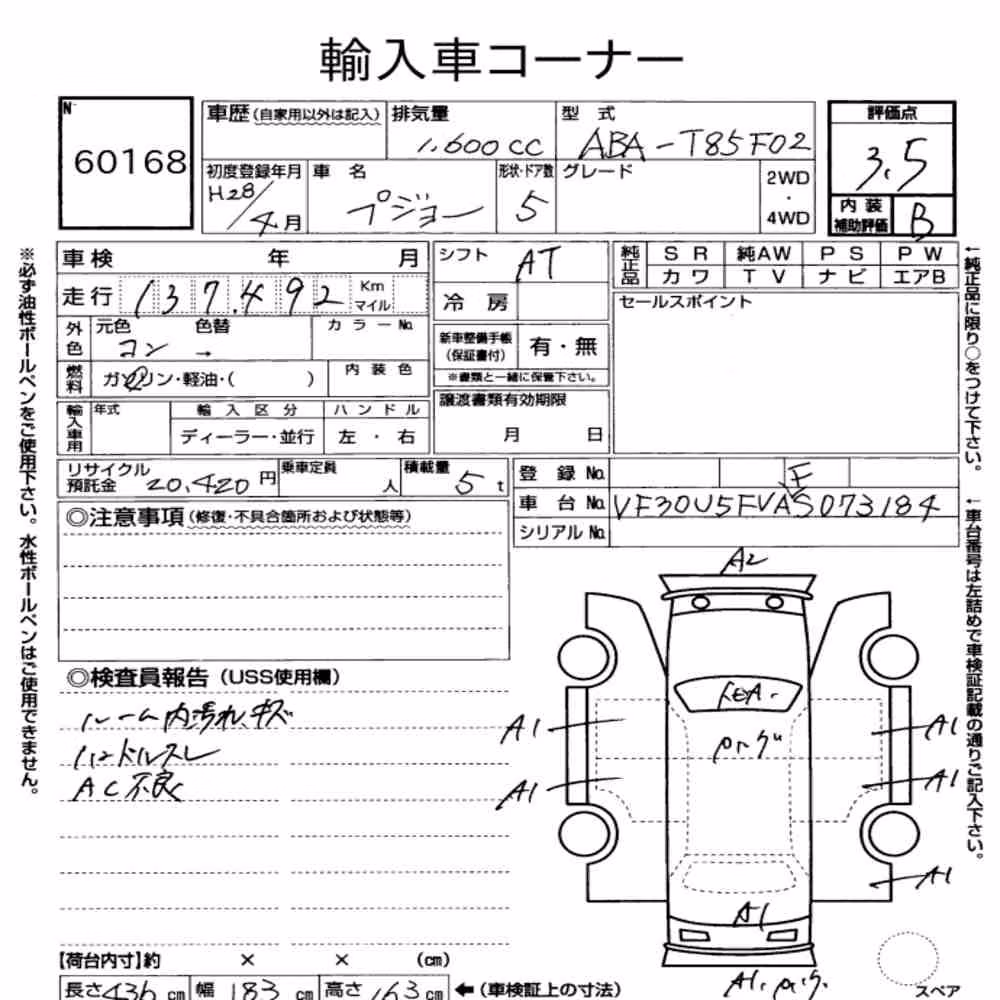 輸入車コーナー
No
60168
車歴 (自家用以外は記入)
排気量
1,600cc
型 式
ABA-T85F02
評価点
3.5
初度登録年月
H28/4月
車 名
プジョー
形状・ドア数
5
グレード
2WD
・
4WD
内装
補助評価
B
車検 年 月
走行 137,492 Km マイル
外色
元色 色替
コン →
カラーNo.
燃料
ガソリン・軽油・( )
内装色
輸入車用
年式
輸入区分
ディーラー・並行
ハンドル
左 ・ 右
シフト AT
冷 房
新車整備手帳
(保証書付)
有・無
※書類と一緒に保管下さい。
譲渡書類有効期限
月 日
純正品
SR 純AW PS PW
カワ TV ナビ エアB
セールスポイント
リサイクル
預託金 20,420円
乗車定員
人
積載量
5 t
登 録 No.
車 台 No. VF30U5FVAS073184
F
シリアル No.
◎注意事項 (修復・不具合箇所および状態等)
◎検査員報告 (USS使用欄)
ルーム内汚れ、キズ
ハンドルスレ
AC不良
A2
A1
A1
A1
A1
A1
A1
スペア
【荷台内寸】約 × × (cm)
長さ 436 cm 幅 183 cm 高さ 163 cm ←(車検証上の寸法)
※必ず油性ボールペンをご使用下さい。水性ボールペンはご使用できません。
←純正品に限り○をつけて下さい。
←車台番号は左詰めで車検証記載の通りご記入下さい。